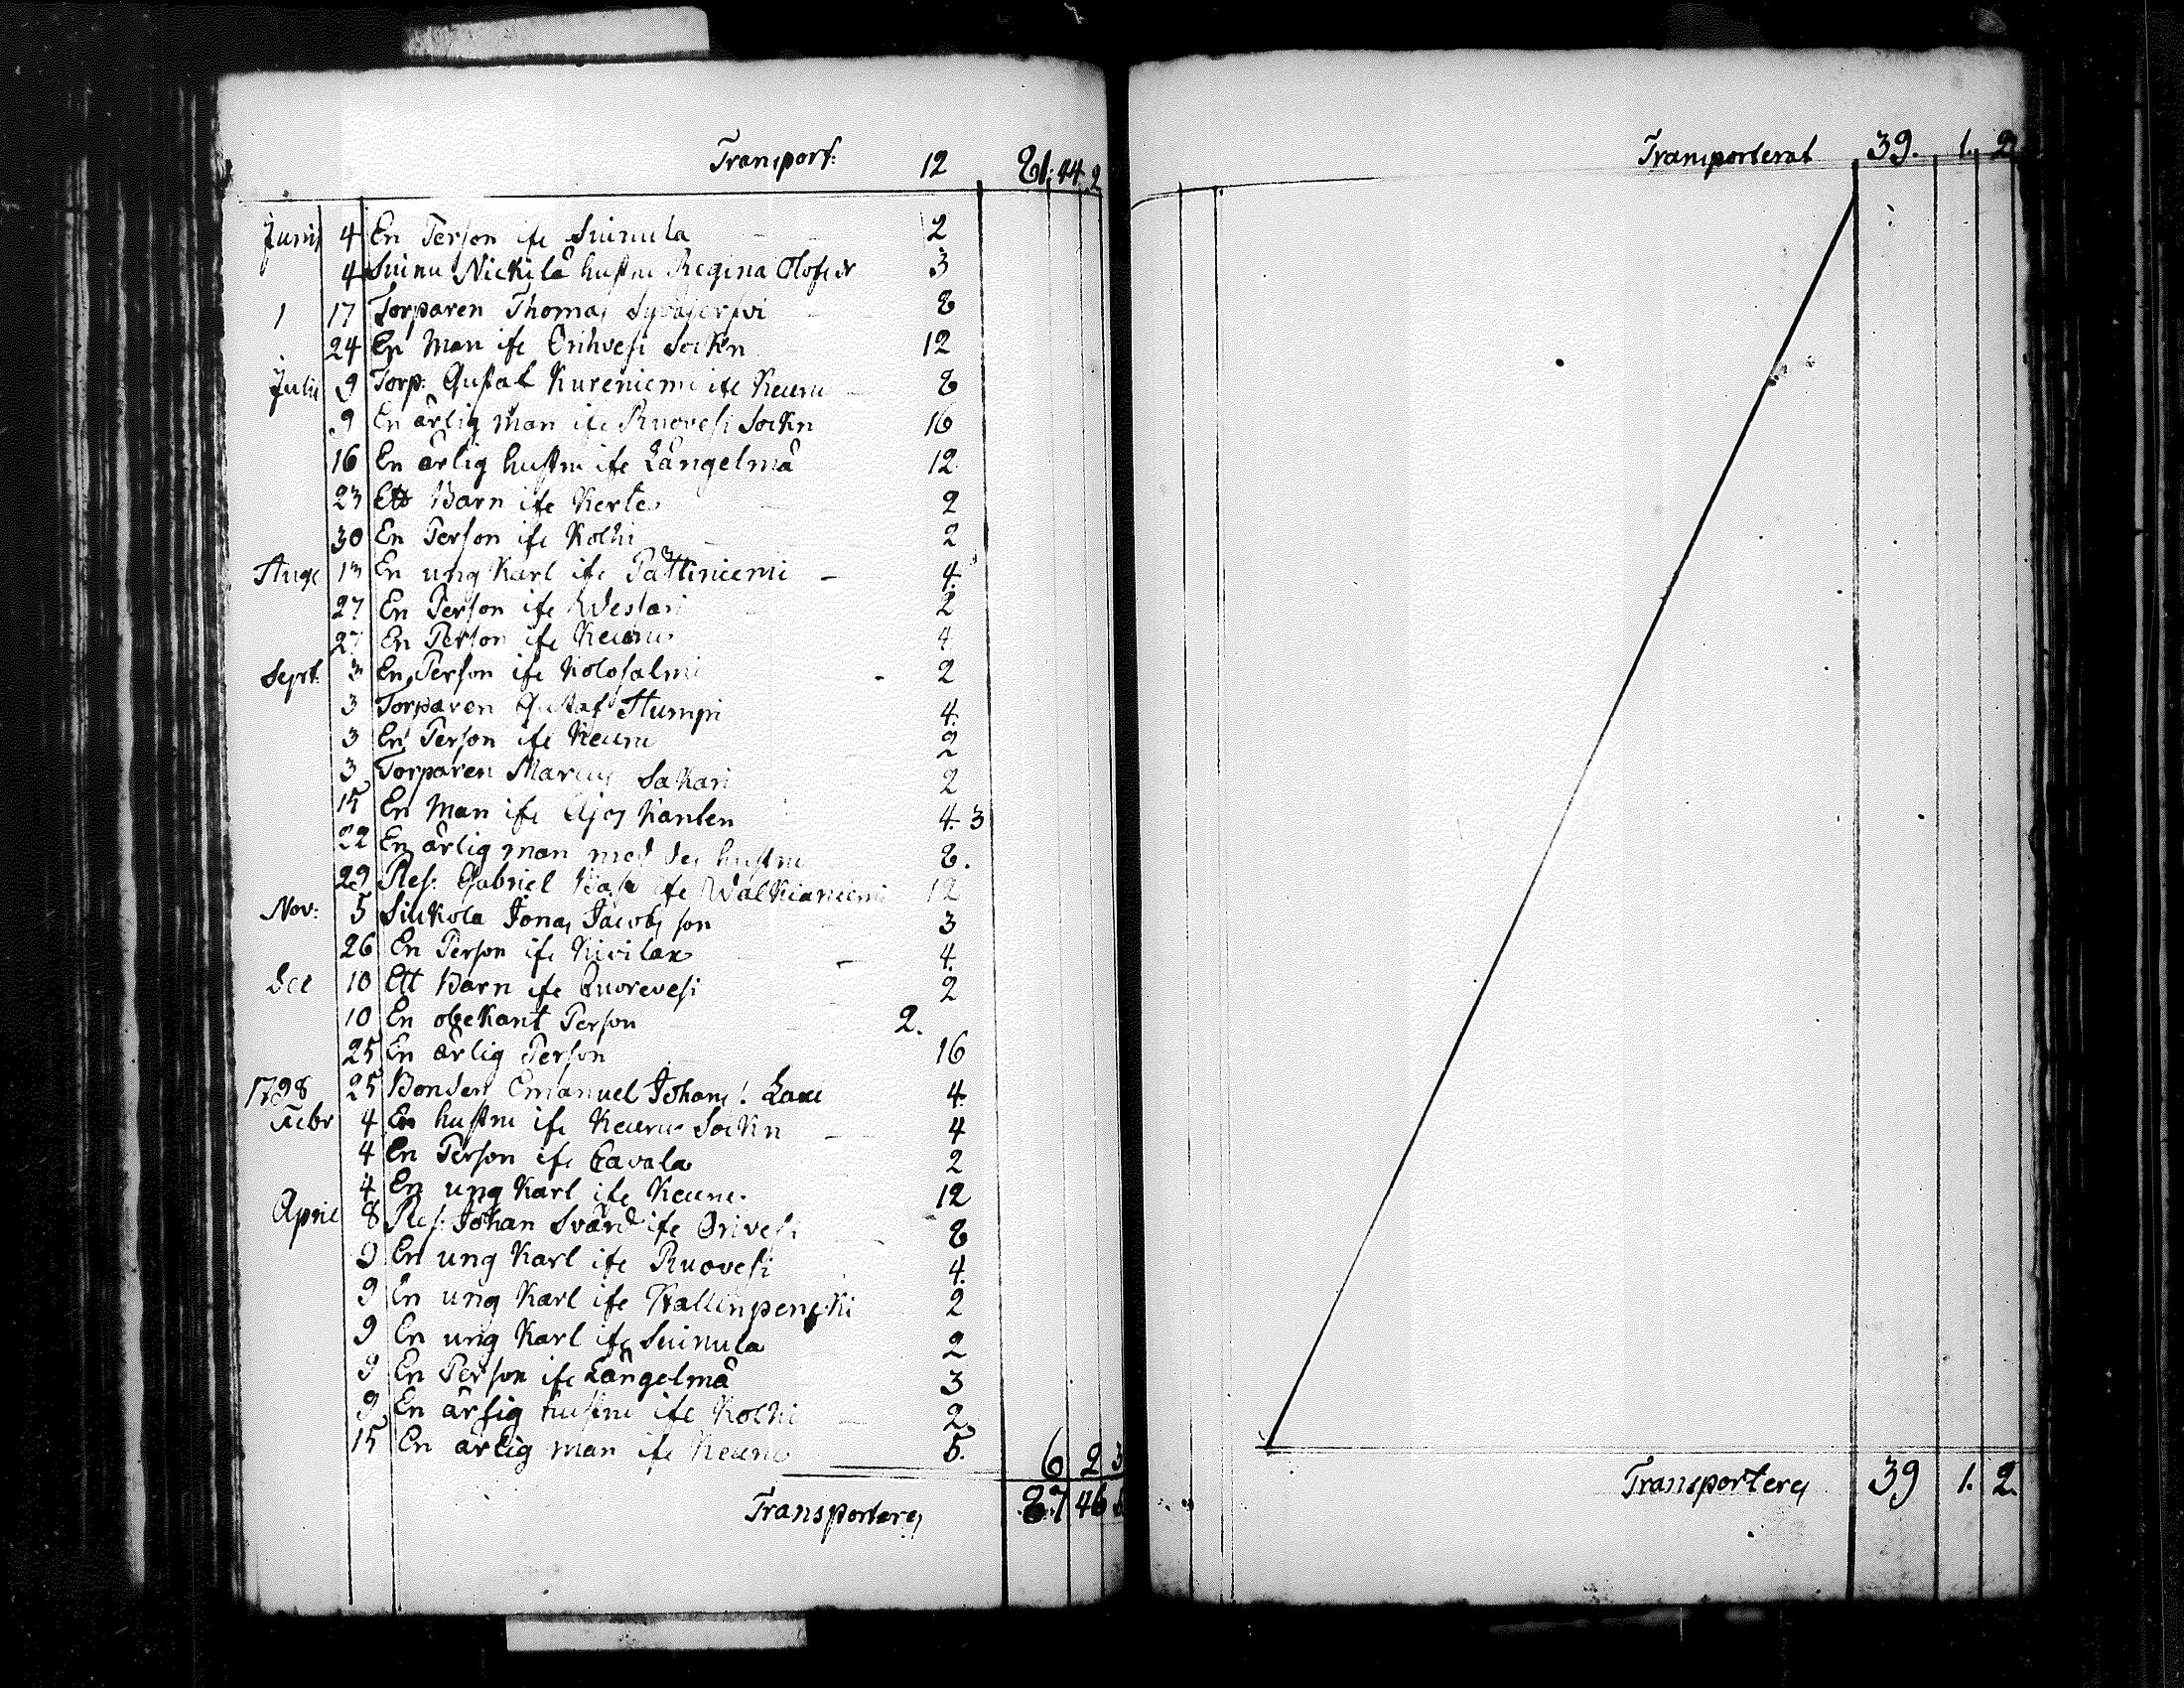 Transport: 12 81. 44. 2
Junii 4 En Person ifr Suinula 2
4 Suinu Nickilä hustru Regina Olofsdr 3
1 17 Torparen Thomas 8
24 En Man ifr Orihvesi Sockn 12
Julii 9 Torp: Gustaf Kureniemi ifr Keuru 8
9 En ärlig man ifr Ruovesi Sockn 16
16 En ärlig hustru ifr Längelmä 12
23 Ett Barn ifr Kerte 2
30 En Person ifr Kolhi 2
Aug 13 En ung Karl ifr Pättiniemi 4.
27 En Person ifr 2
27 En Person ifr Keuru 4
Sept. 3 En Person ifr Kolosalmi 2
3 Torparen Gustaf Humpi 4.
3 En Person ifr Keuru 2
3 Torparen Marcus Sakari 2
15 En Man ifr Ajos Kanten 4. 3
22 En ärlig man med des hustru 8.
29 Res: Gabriel ifr Walkianiemi 12
Nov: 5 Siukola Jonas Jacobs son 3
26 En Person ifr Kivilax 4.
Dec 10 Ett Barn ifr Quorevesi 2
10 En obekant Person 2.
25 En ärlig Person 16
1798 25 Bonden Emanuel Johans: 4.
Febr 4 En hustru ifr Keuru Sockn 4
4 En Person ifr Eavala 2
4 En ung Karl ifr Keuru 12
April 8 Res: Johan Svärd ifr Orivesi 8
9 En ung Karl ifr Ruovesi 4.
9 En ung Karl ifr 2
9 En ung Karl ifr Suinula 2
9 En Person ifr Längelmä 3
9 En ärlig hustru ifr Kolhi 2.
15 En ärlig man ifr Keuru 5. 6 2 3
Transporteres 87 46 5
Transporterat 39. 1. 2
Transporteres 39 1. 2.